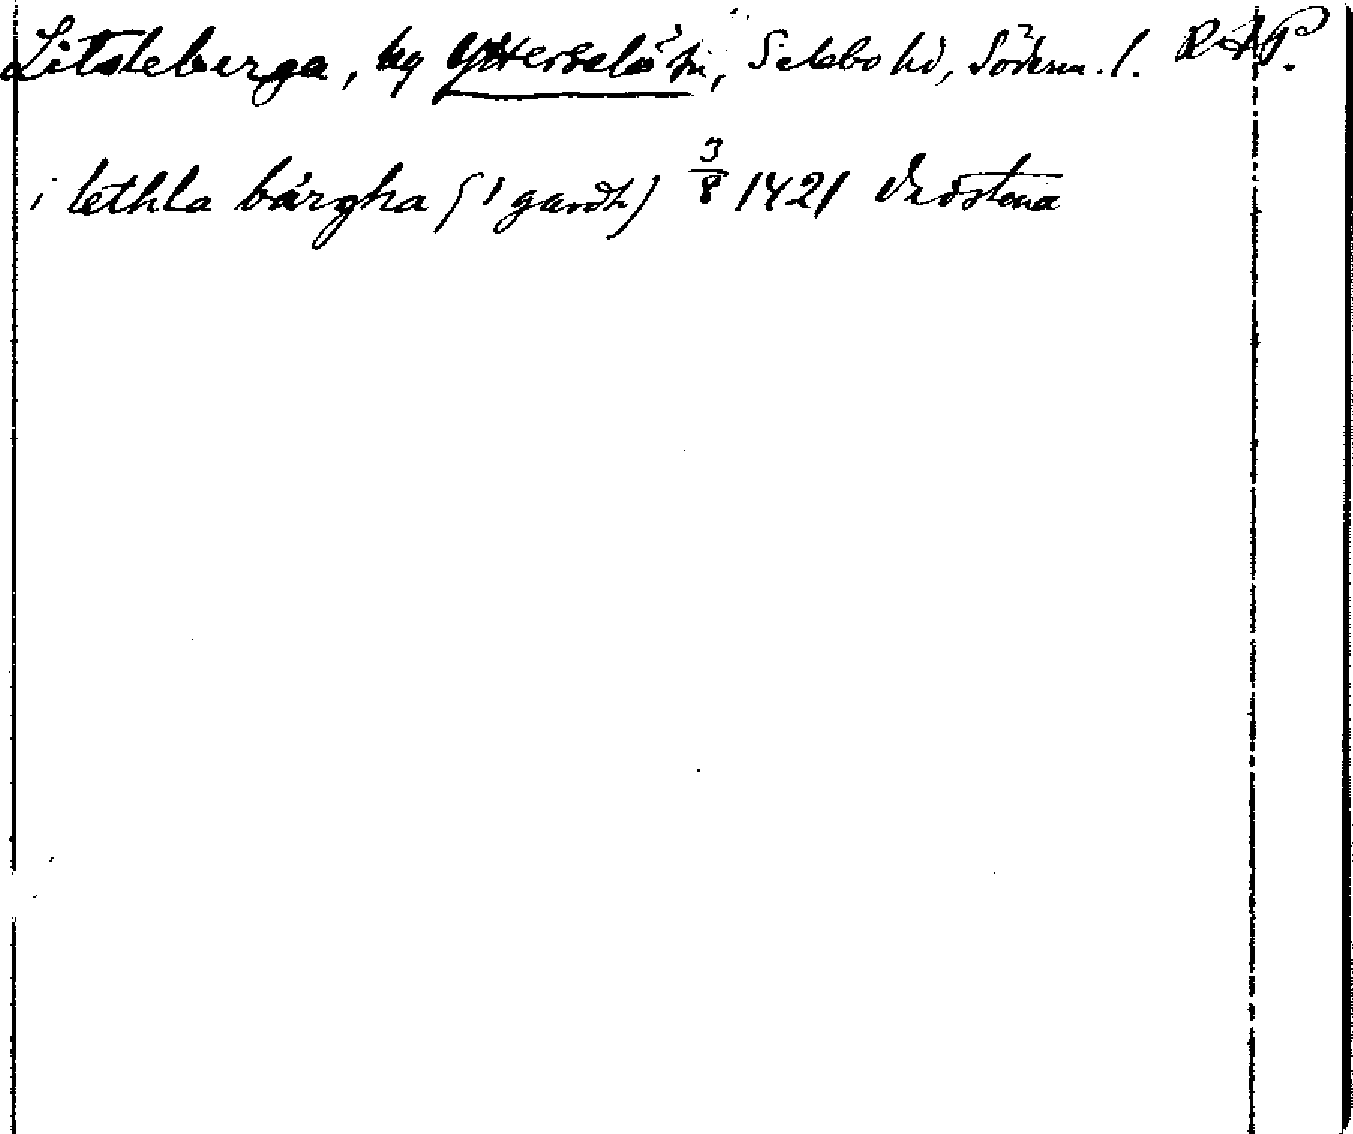 Litsleberga, by Ytterselö sn, Selebo hd, Söderm. l. RAP.
i lethla bärgha (1 gardh) 3/8 1421